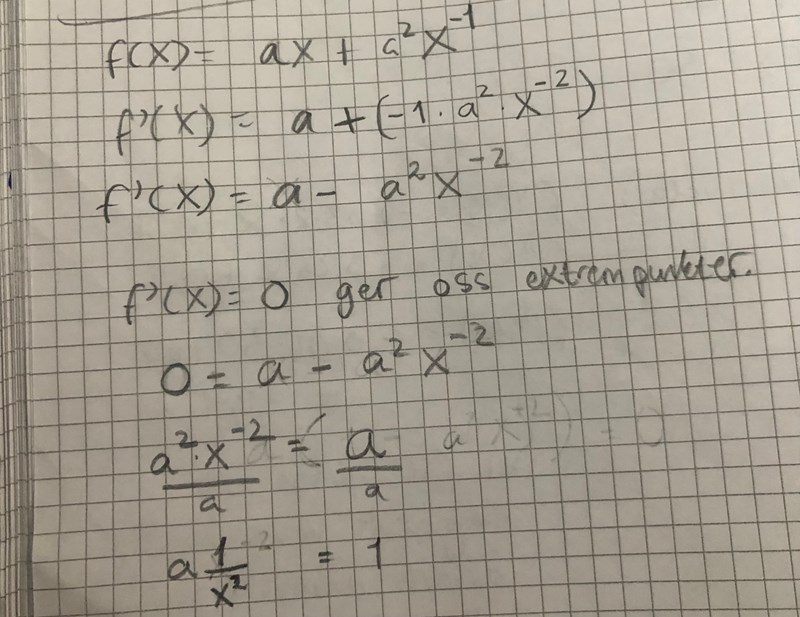 f(x) = ax + a²x⁻¹
f'(x) = a + (-1 · a² · x⁻²)
f'(x) = a - a²x⁻²
f'(x) = 0 ger oss extrempunkter.
0 = a - a²x⁻²
a² · x⁻² / a = a / a
a 1/x² = 1